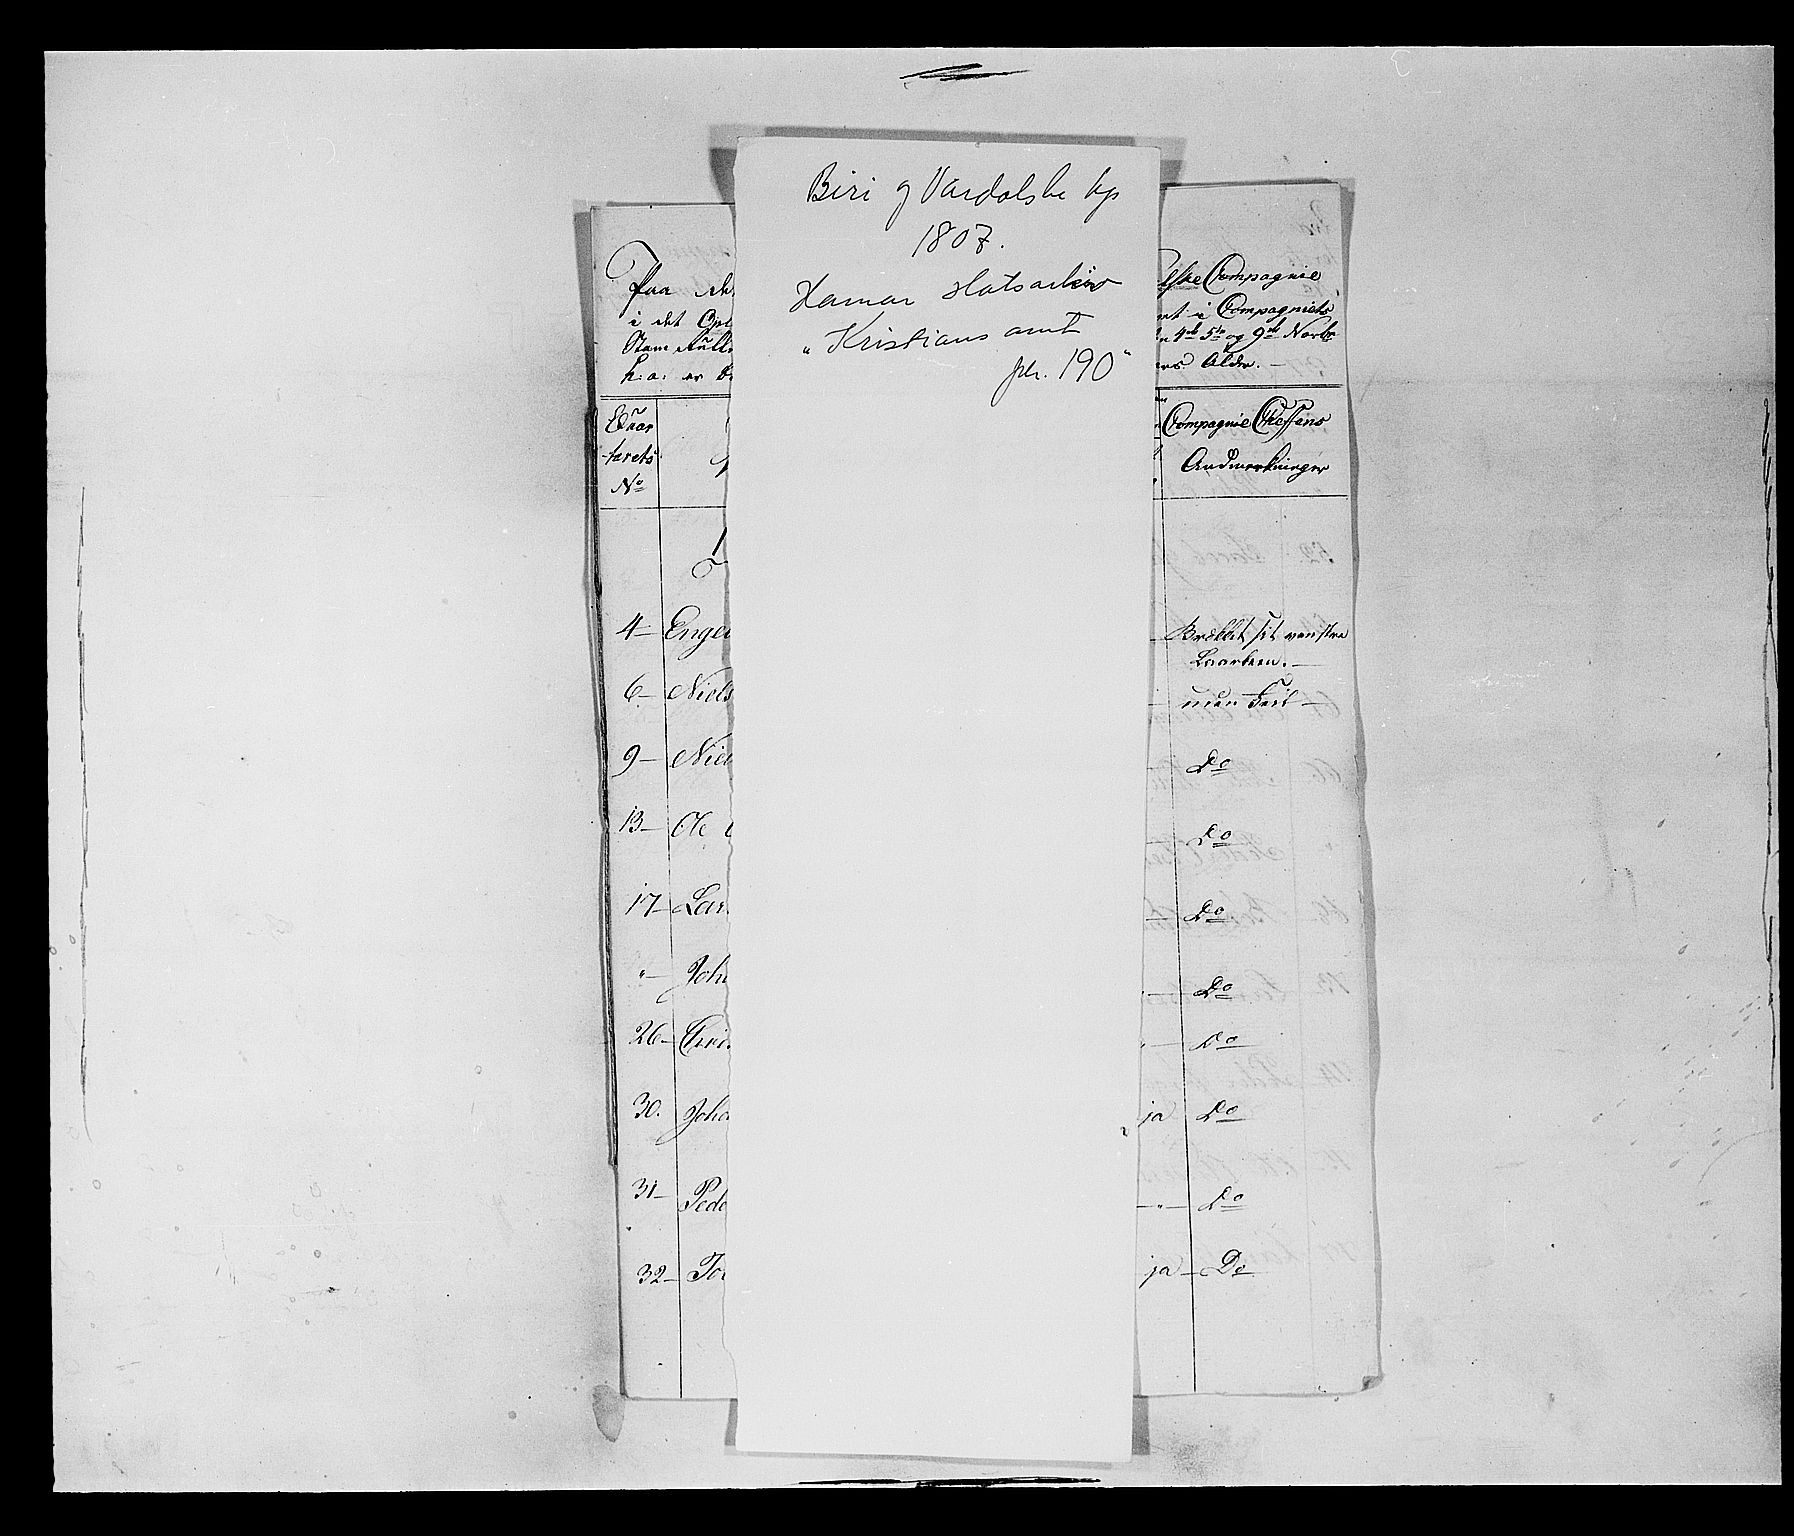 Biri og Vardalske kp
1807.
Hamar statsarkiv
"Kristians amt
pk. 190"
Paa de
i det Opl
Stam Rulle
h:a: er
lske Compagnie
ort i Compagniets
4de 5te og 9de
ers Alder. —
Qvar
terets
No
Compagnie Cheffens
Andmerkninger
4 — Enge
Brækket sit venstre
Laarbeen. —
6 — Niels
uden Feil —
9 — Niel
Do
13 — Ole
Do
17 — Lar
Do
" — Joh
Do
26 — Chri
Do
30. Joha
ja Do
31 — Pede
— " — Do
32 — To
ja — Do